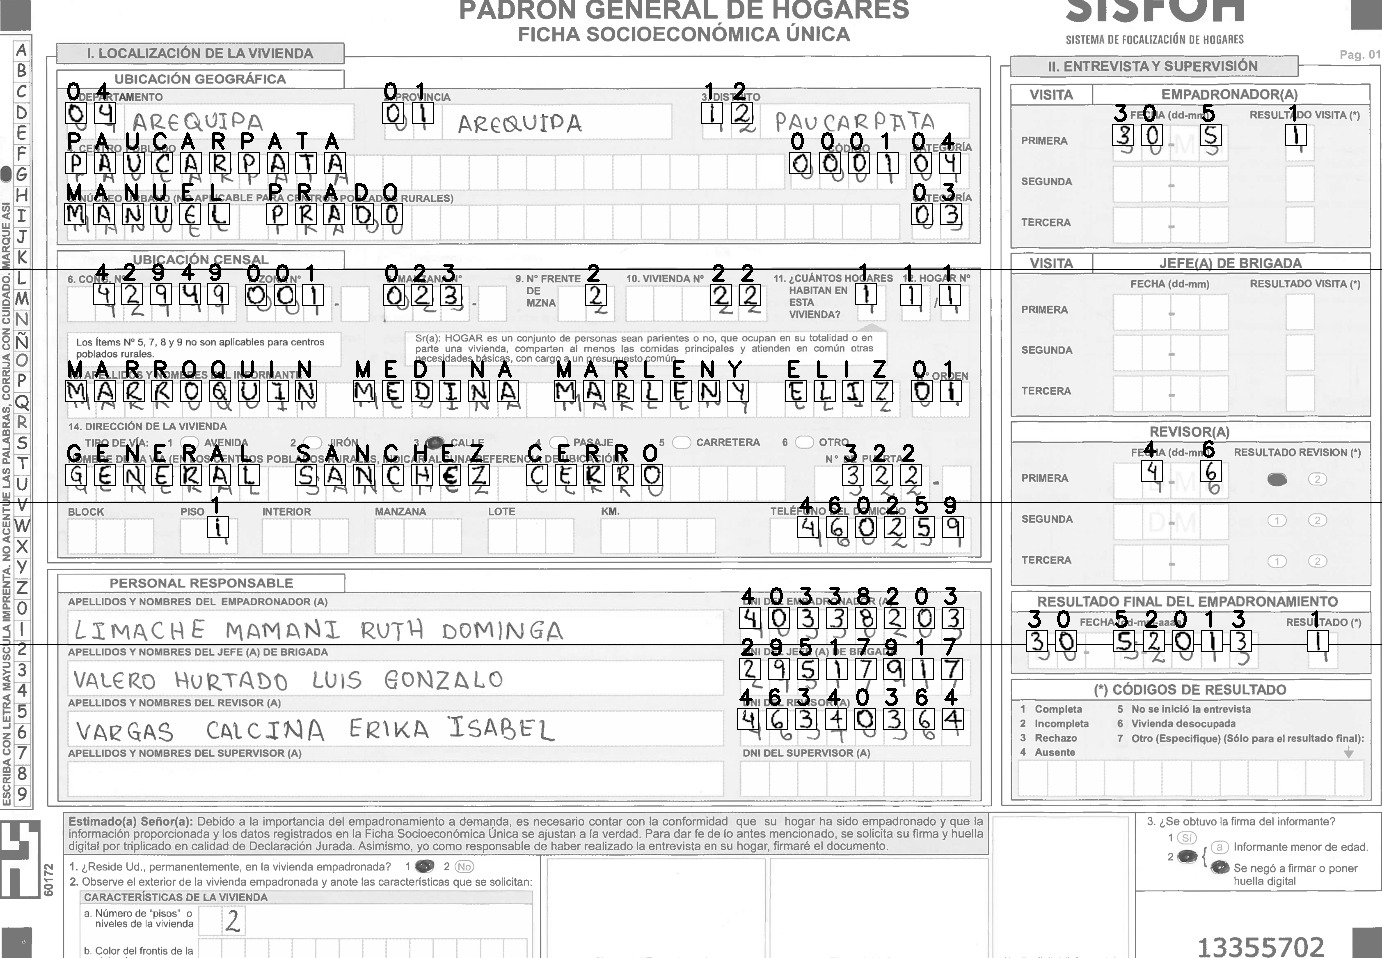 PADRON GENERAL DE HOGARES
FICHA SOCIOECONÓMICA ÚNICA
SISFOH
SISTEMA DE FOCALIZACIÓN DE HOGARES
Pag. 01
ESCRIBA CON LETRA MAYUSCULA IMPRENTA. NO ACENTUE LAS PALABRAS, CORRIJA CON CUIDADO. MARQUE ASI
A B C D E F G H I J K L M N Ñ O P Q R S T U V W X Y Z 0 1 2 3 4 5 6 7 8 9
I. LOCALIZACIÓN DE LA VIVIENDA
UBICACIÓN GEOGRÁFICA
DEPARTAMENTO PROVINCIA 3. DISTRITO
04 01 12
04 AREQUIPA 01 AREQUIPA 12 PAUCARPATA
PAUCARPATA 0001 04
CÓDIGO CATEGORÍA
PAUCARPATA 0001 04
MANUEL PRADO 03
NÚCLEO URBANO (NO APLICABLE PARA CENTROS POBLADOS RURALES) CATEGORÍA
MANUEL PRADO 03
UBICACIÓN CENSAL
42949 001 023 2 22 1 1 1
9. N° FRENTE DE MZNA 10. VIVIENDA N° 11. ¿CUÁNTOS HOGARES HABITAN EN ESTA VIVIENDA? 12. HOGAR N°
42949 001 - 023 - 2 22 1 1/1
Los Ítems N° 5, 7, 8 y 9 no son aplicables para centros poblados rurales.
Sr(a): HOGAR es un conjunto de personas sean parientes o no, que ocupan en su totalidad o en parte una vivienda, comparten al menos las comidas principales y atienden en común otras necesidades básicas, con cargo a un presupuesto común.
MARROQUIN MEDINA MARLENY ELIZ 01
APELLIDOS Y NOMBRES DEL INFORMANTE N° ORDEN
MARROQUIN MEDINA MARLENY ELIZ 01
14. DIRECCIÓN DE LA VIVIENDA
TIPO DE VÍA: 1 AVENIDA 2 JIRÓN 3 CALLE 4 PASAJE 5 CARRETERA 6 OTRO
GENERAL SANCHEZ CERRO 322
NOMBRE DE LA VÍA (EN LOS CENTROS POBLADOS RURALES, INDICAR ALGUNA REFERENCIA DE UBICACIÓN) N° DE PUERTA
GENERAL SANCHEZ CERRO 322-
1 460259
BLOCK PISO INTERIOR MANZANA LOTE KM. TELÉFONO DEL DOMICILIO
1 460259
PERSONAL RESPONSABLE
APELLIDOS Y NOMBRES DEL EMPADRONADOR (A) DNI DEL EMPADRONADOR (A)
40338203
LIMACHE MAMANI RUTH DOMINGA 40338203
APELLIDOS Y NOMBRES DEL JEFE (A) DE BRIGADA DNI DEL JEFE (A) DE BRIGADA
29517917
VALERO HURTADO LUIS GONZALO 29517917
APELLIDOS Y NOMBRES DEL REVISOR (A) DNI DEL REVISOR(A)
46340364
VARGAS CALCINA ERIKA ISABEL 46340364
APELLIDOS Y NOMBRES DEL SUPERVISOR (A) DNI DEL SUPERVISOR (A)
II. ENTREVISTA Y SUPERVISIÓN
VISITA EMPADRONADOR(A)
FECHA (dd-mm) RESULTADO VISITA (*)
30 5 1
PRIMERA 30 - 5 1
SEGUNDA -
TERCERA -
VISITA JEFE(A) DE BRIGADA
FECHA (dd-mm) RESULTADO VISITA (*)
PRIMERA -
SEGUNDA -
TERCERA -
REVISOR(A)
FECHA (dd-mm) RESULTADO REVISION (*)
4 6
PRIMERA 4 - 6 2
SEGUNDA - 1 2
TERCERA - 1 2
RESULTADO FINAL DEL EMPADRONAMIENTO
FECHA (dd-mm-aaaa) RESULTADO (*)
30 52013 1
30 - 52013 1
(*) CÓDIGOS DE RESULTADO
1 Completa 5 No se inició la entrevista
2 Incompleta 6 Vivienda desocupada
3 Rechazo 7 Otro (Especifique) (Sólo para el resultado final):
4 Ausente
Estimado(a) Señor(a): Debido a la importancia del empadronamiento a demanda, es necesario contar con la conformidad que su hogar ha sido empadronado y que la
información proporcionada y los datos registrados en la Ficha Socioeconómica Única se ajustan a la verdad. Para dar fe de lo antes mencionado, se solicita su firma y huella
digital por triplicado en calidad de Declaración Jurada. Asimismo, yo como responsable de haber realizado la entrevista en su hogar, firmaré el documento.
60172
1. ¿Reside Ud., permanentemente, en la vivienda empadronada? 1 2 No
2. Observe el exterior de la vivienda empadronada y anote las características que se solicitan:
CARACTERÍSTICAS DE LA VIVIENDA
a. Número de "pisos" o niveles de la vivienda 2
b. Color del frontis de la
3. ¿Se obtuvo la firma del informante?
1 Sí
2 { a Informante menor de edad.
Se negó a firmar o poner huella digital
13355702